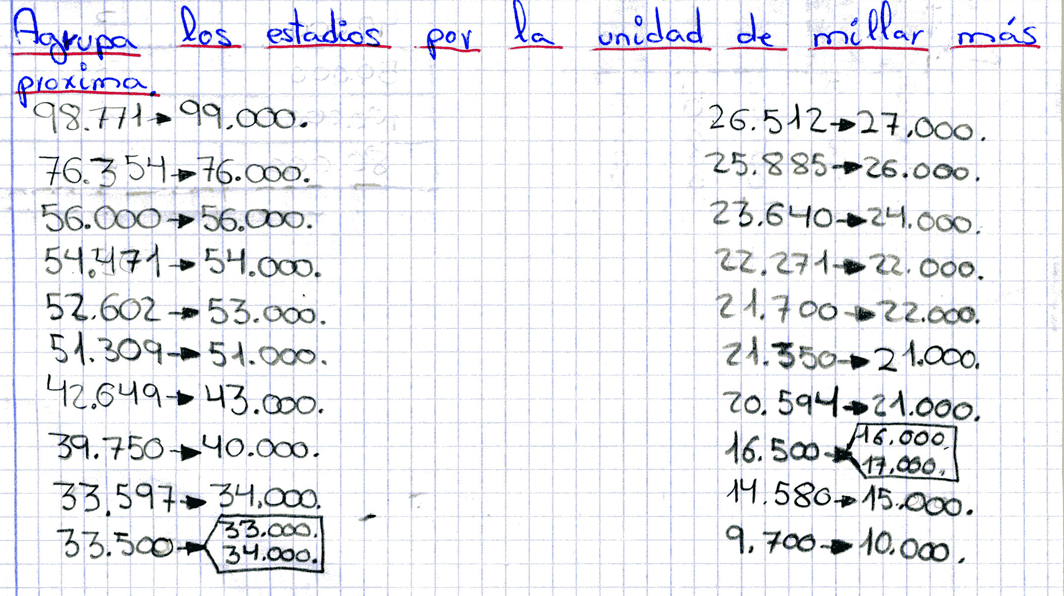 Agrupa los estadios por la unidad de millar más
proxima.
98.771→99.000.
76.354→76.000.
56.000→56.000.
54.471→54.000.
52.602→53.000.
51.309→51.000.
42.649→43.000.
39.750→40.000.
33.597→34.000.
33.500→33.000.
34.000.
26.512→27.000.
25.885→26.000.
23.640→24.000.
22.271→22.000.
21.700→22.000.
21.350→21.000.
20.594→21.000.
16.500→16.000
17.000.
14.580→15.000.
9.700→10.000.